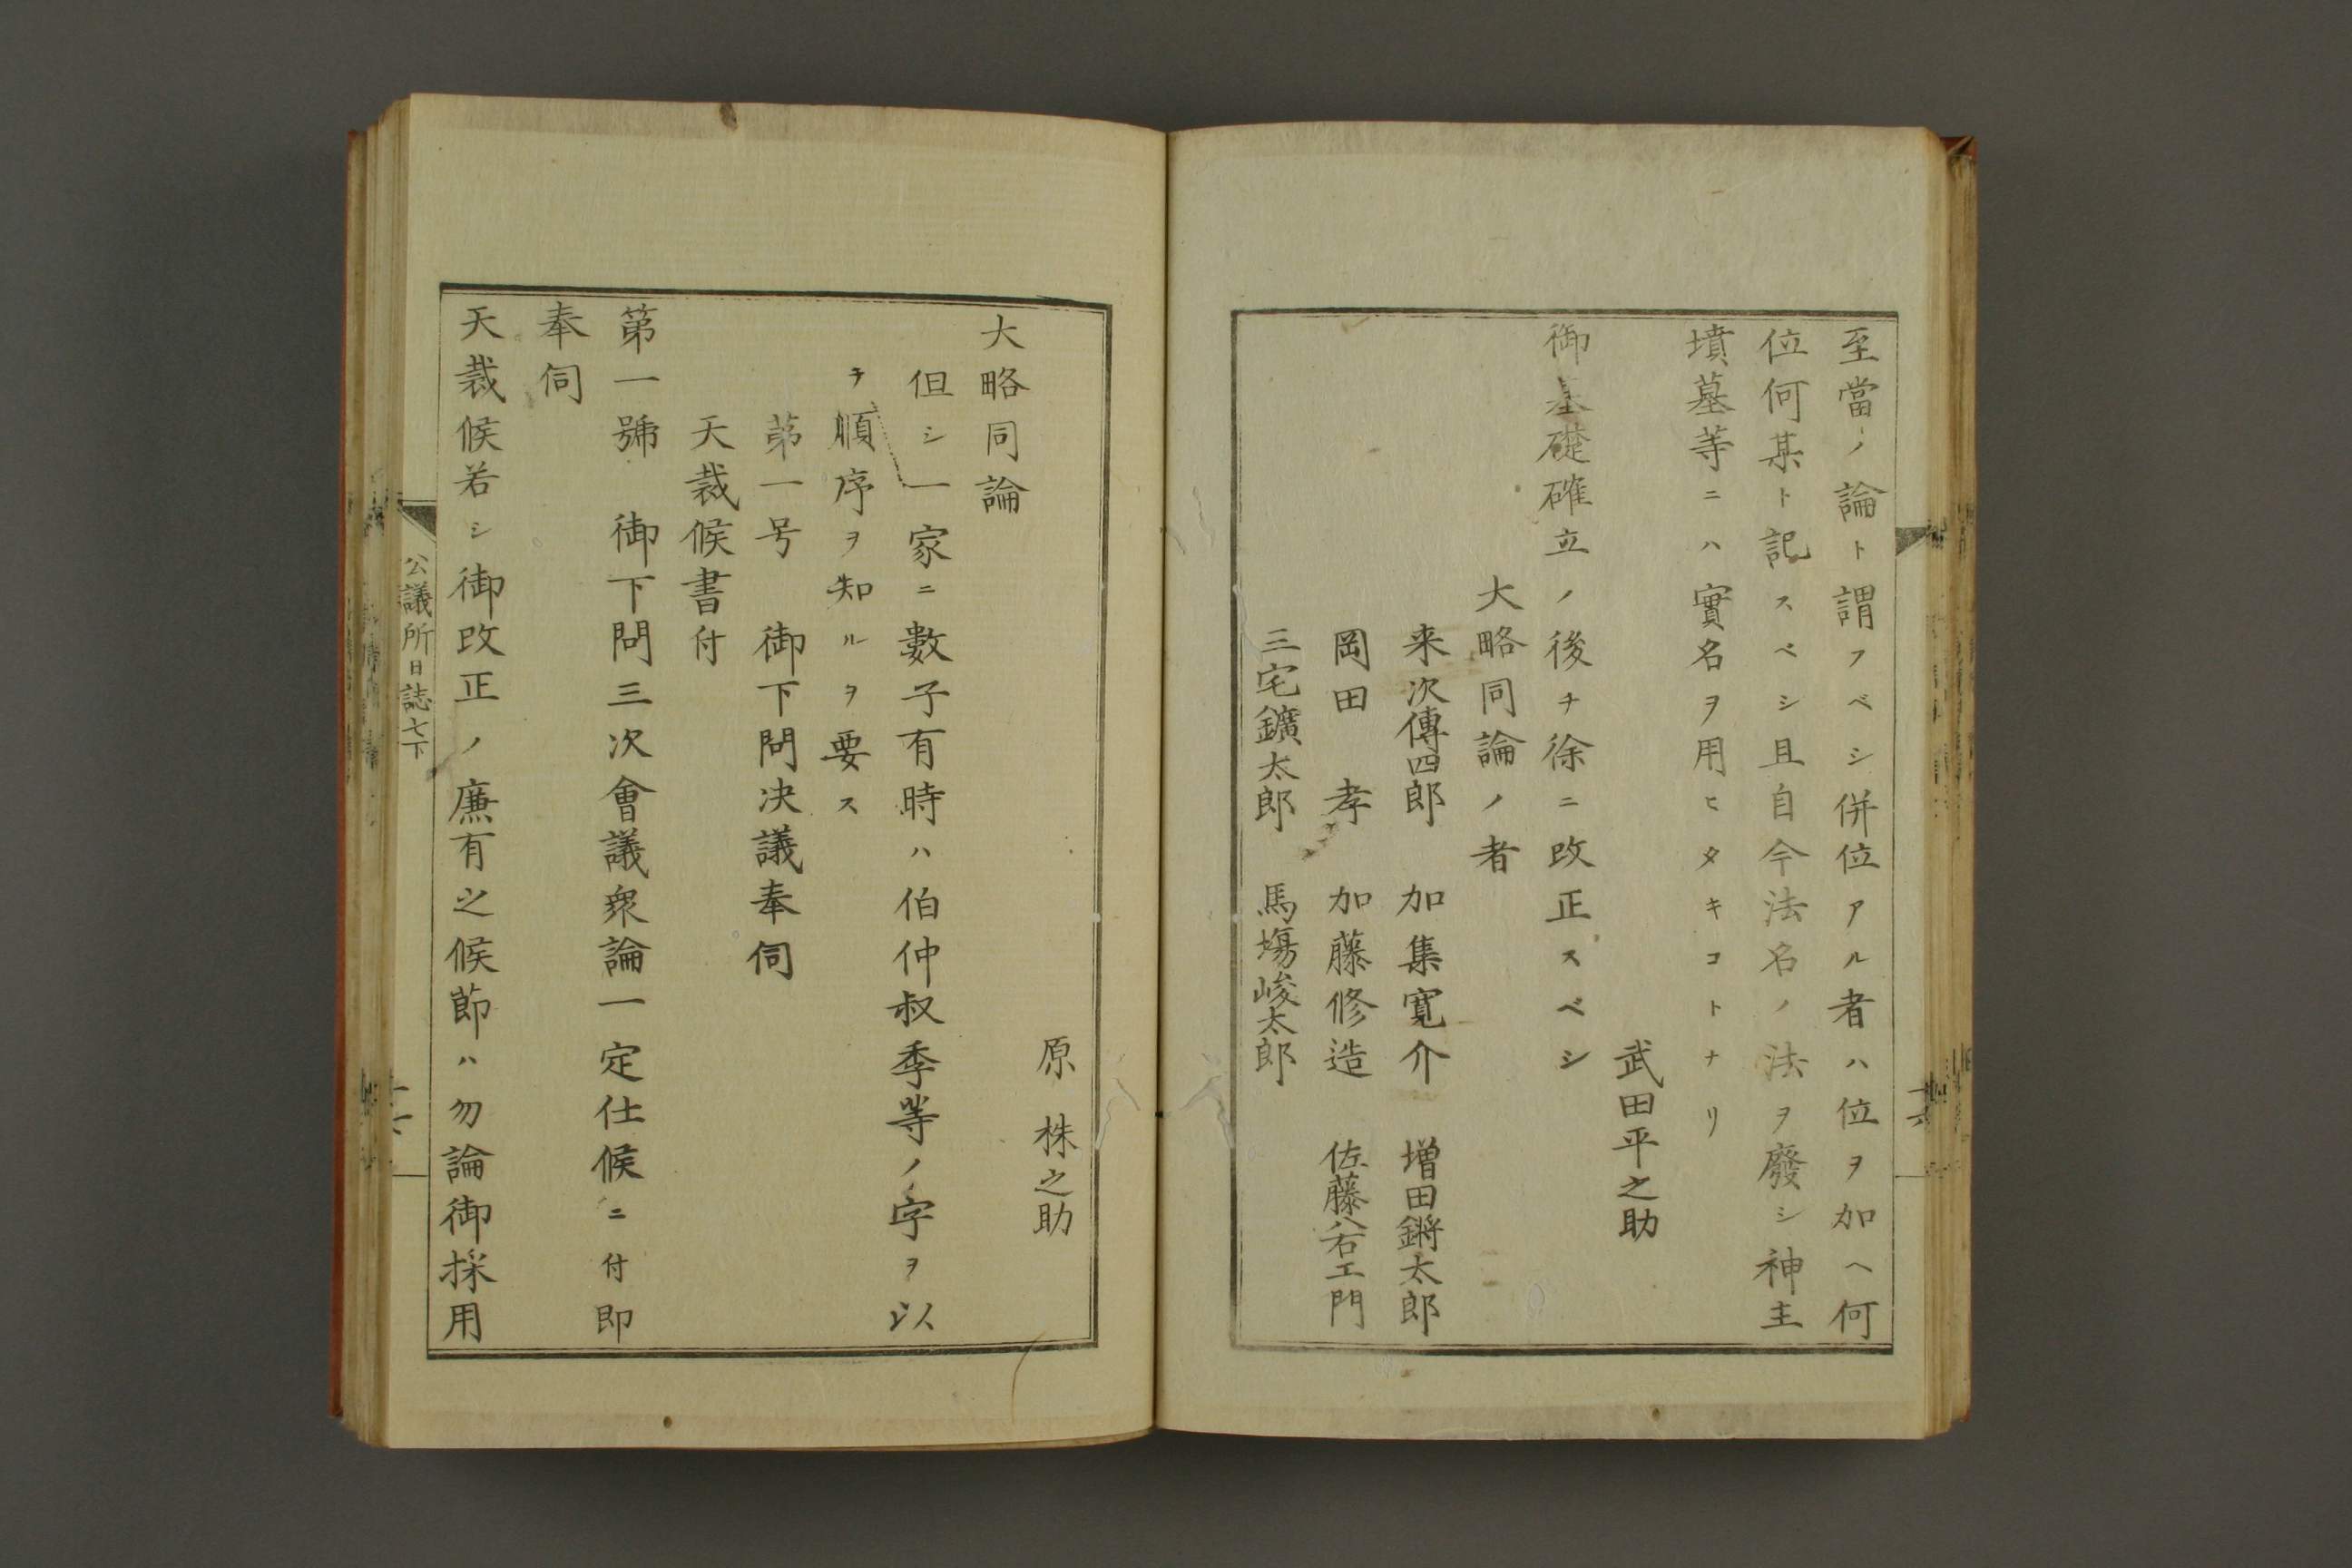 至當ノ論ト謂フベシ併位アル者ハ位ヲ加ヘ何
位何某ト記スベシ且自今法名ノ法ヲ廢シ神主
墳墓等ニハ實名ヲ用ヒタキコトナリ
武田平之助
御基礎確立ノ後チ徐ニ改正スベシ
大略同論ノ者
来次傳四郎 加集寛介 増田鏘太郎
岡田 孝 加藤修造 佐藤八右エ門
三宅鑛太郎 馬塲峻太郎
原 株之助
大略同論
但シ一家ニ數子有時ハ伯仲叔季等ノ字ヲ以
テ順序ヲ知ルヲ要ス
第一号 御下問决議奉伺
天裁候書付
第一號 御下問三次會議衆論一定仕候ニ付即
奉伺
天裁候若シ御改正ノ廉有之候節ハ勿論御採用
公議所日誌七下